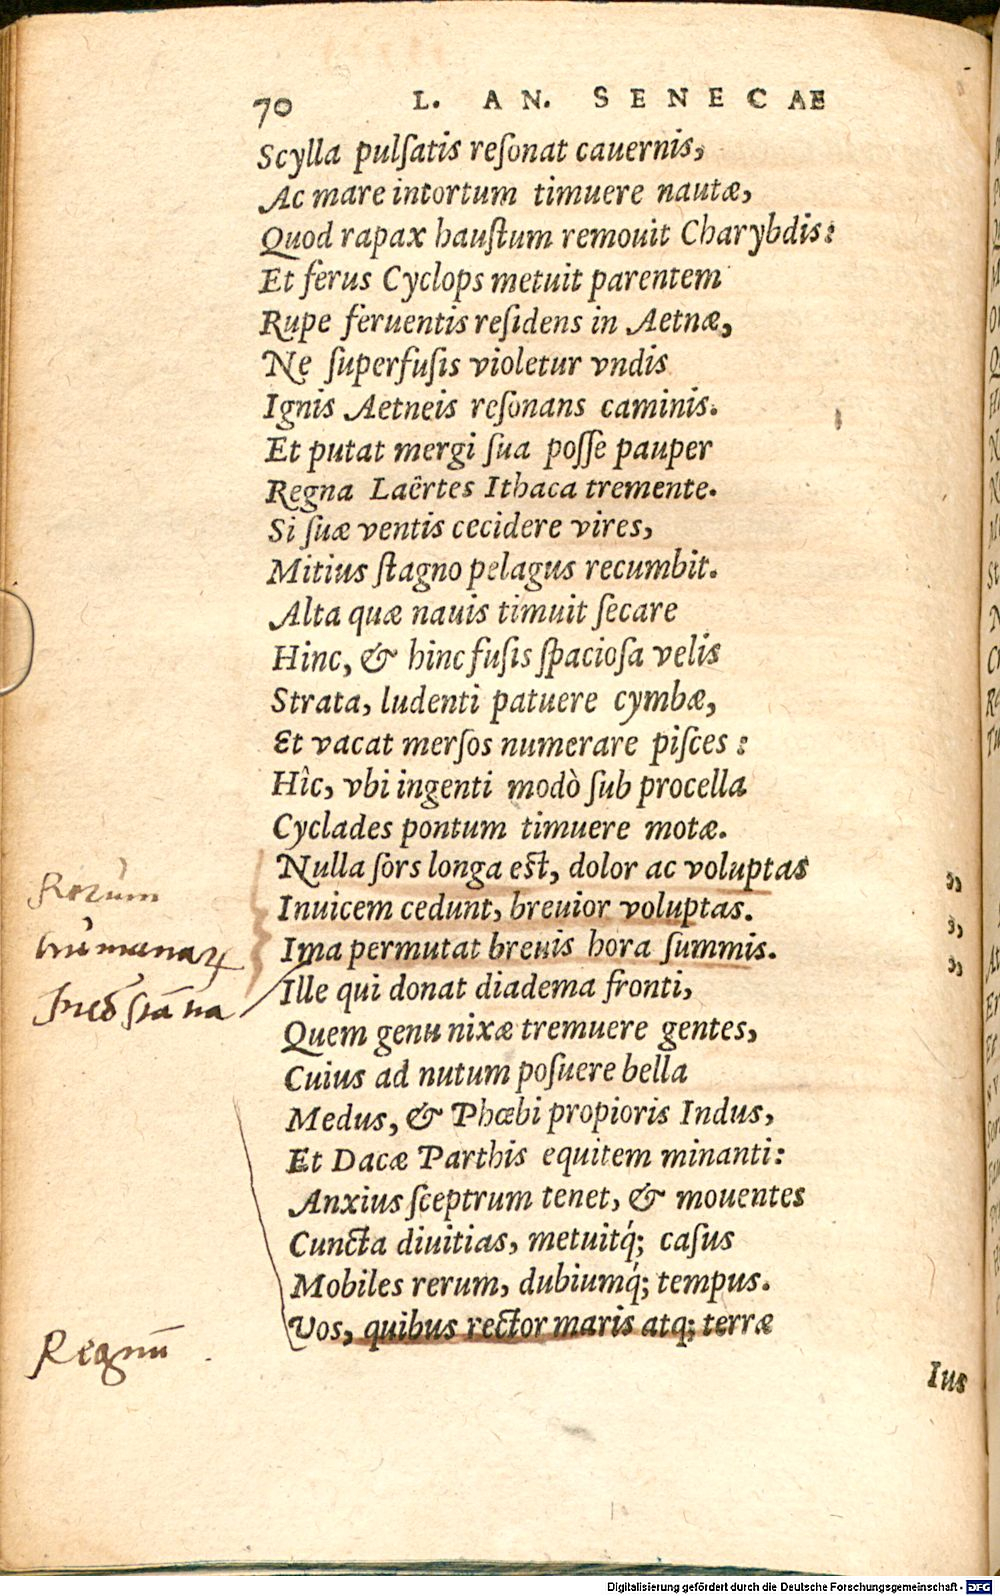 70 L. AN. SENECAE
Scylla pulſatis reſonat cauernis,
Ac mare intortum timuere nautæ,
Quod rapax hauſtum remouit Charybdis:
Et ferus Cyclops metuit parentem
Rupe feruentis reſidens in Aetnæ,
Ne ſuperfuſis violetur vndis
Ignis Aetneis reſonans caminis.
Et putat mergi ſua poſſe pauper
Regna Laêrtes Ithaca tremente.
Si ſuæ ventis cecidere vires,
Mitius ſtagno pelagus recumbit.
Alta quæ nauis timuit ſecare
Hinc, & hinc fuſis ſpacioſa velis
Strata, ludenti patuere cymbæ,
Et vacat merſos numerare piſces:
Hîc, vbi ingenti modò ſub procella
Cyclades pontum timuere motæ.
Nulla ſors longa eſt, dolor ac voluptas ,,
Rerum
Inuicem cedunt, breuior voluptas. ,,
humanaꝝ
Ima permutat breuis hora ſummis. ,,
Incōſtātia
Ille qui donat diadema fronti,
Quem genu nixæ tremuere gentes,
Cuius ad nutum poſuere bella
Medus, & Phœbi propioris Indus,
Et Dacæ Parthis equitem minanti:
Anxius ſceptrum tenet, & mouentes
Cuncta diuitias, metuitq́; caſus
Mobiles rerum, dubiumq́; tempus.
Vos, quibus rector maris atq; terræ
Regnū
Ius
Digitalisierung gefördert durch die Deutsche Forschungsgemeinschaft - DFG